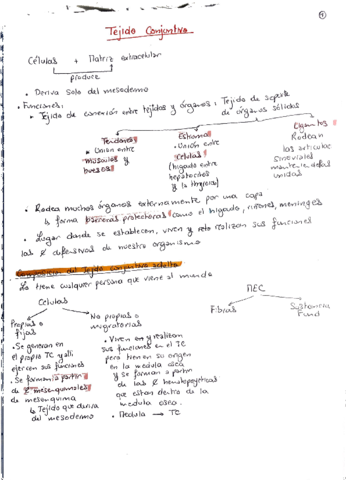 Tejido Conjuntivo
Células + Matriz extracelular
produce
• Deriva solo del mesodermo
• Funciones:
• Tejido de conexión entre tejidos y órganos: Tejido de soporte
de órganos sólidos
Tendones
• Unión entre
músculos y
huesos
Estroma
• Unión entre
células
(hígado entre
hepatocitos
y la
Ligamentos
Rodean
las articulac
sinoviales
unidas
• Rodea muchos órganos externamente por una capa
↳ forma barreras protectoras como el hígado, riñones, meninges
• Lugar donde se establecen, viven y realizan sus funciones
las ∅ defensivas de nuestro organismo
Composición del tejido conjuntivo adulto
- Lo tiene cualquier persona que viene al mundo
Células
Propias o
fijas
• Se generan en
el propio TC y allí
ejercen sus funciones
• Se forman a partir
de ∅ mesenquimales
de mesenquima
↳ Tejido que deriva
del mesodermo
No propias o
migratorias
• Viven en y realizan
sus funciones en el TC
pero tienen su origen
en la médula ósea
y se forman a partir
de las ∅ hematopoyéticas
que están dentro de la
médula ósea.
• Médula → TC
MEC
Fibras
Sustancia
Fund